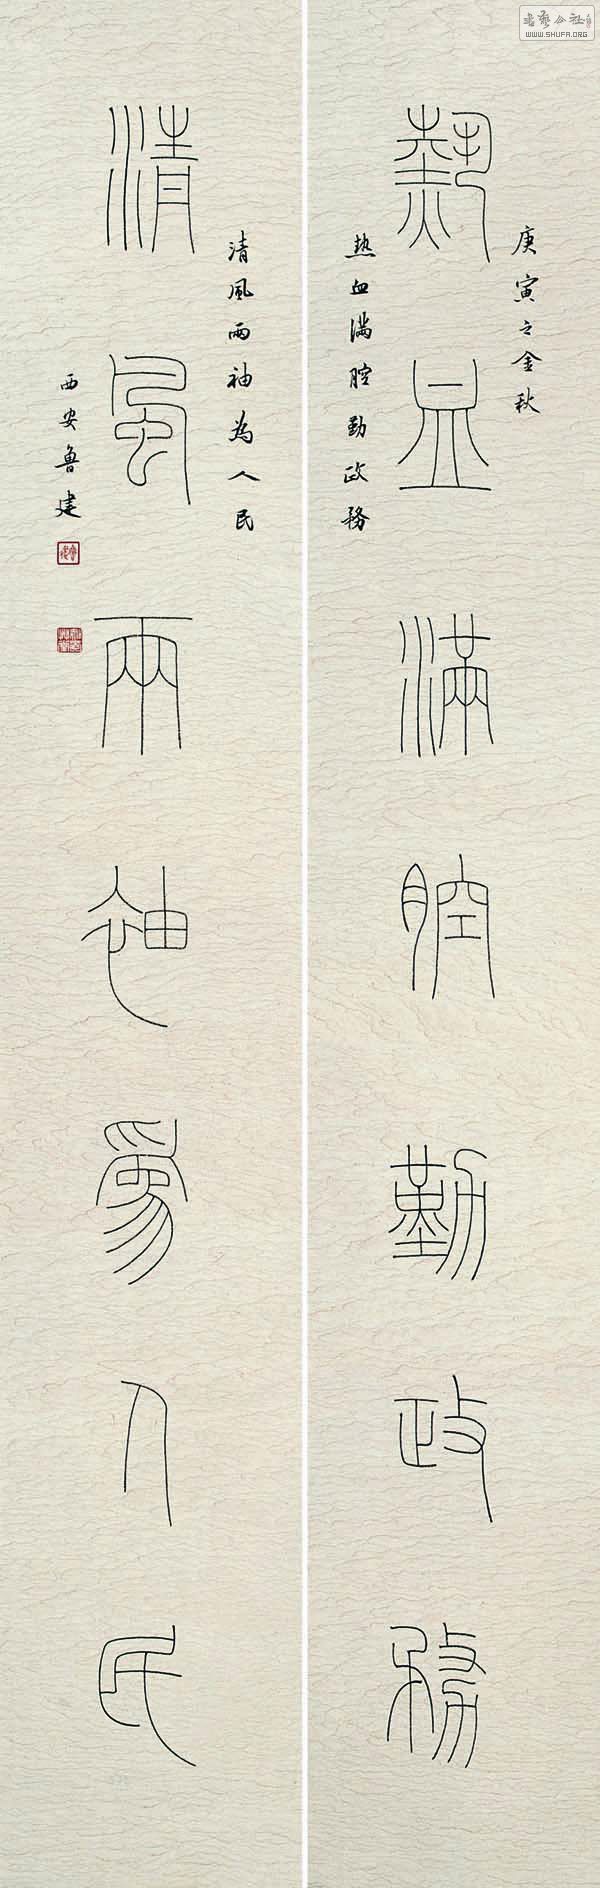 庚寅之金秋
熱血滿腔勤政務
热血满腔勤政務
清風兩袖為人民
清風兩袖為人民
西安鲁建
書藝公社
WWW.SHUFA.ORG